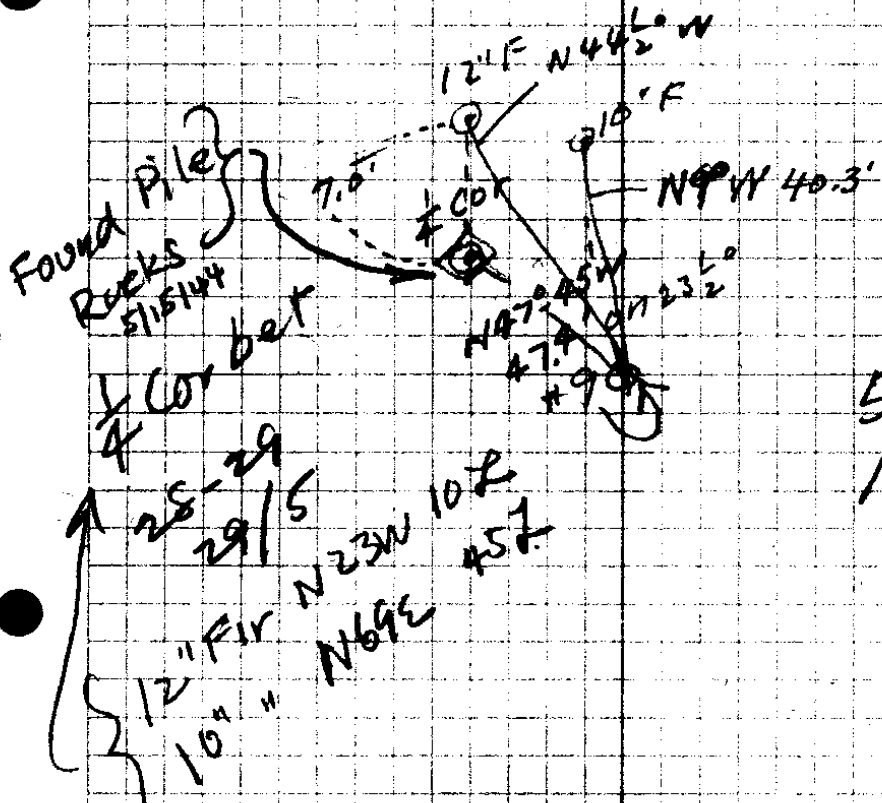 12" F
N 44 1/2° W
10" F
N 9° W 40.3'
7.0'
1/4 Cor
Found Pile
Rocks
5/15/44
N 47° 45' W
47.4
#9
23 1/2°
1/4 Cor bet
28-29
29/5
12" Fir N23W 10 L
10" " N69E 45 L